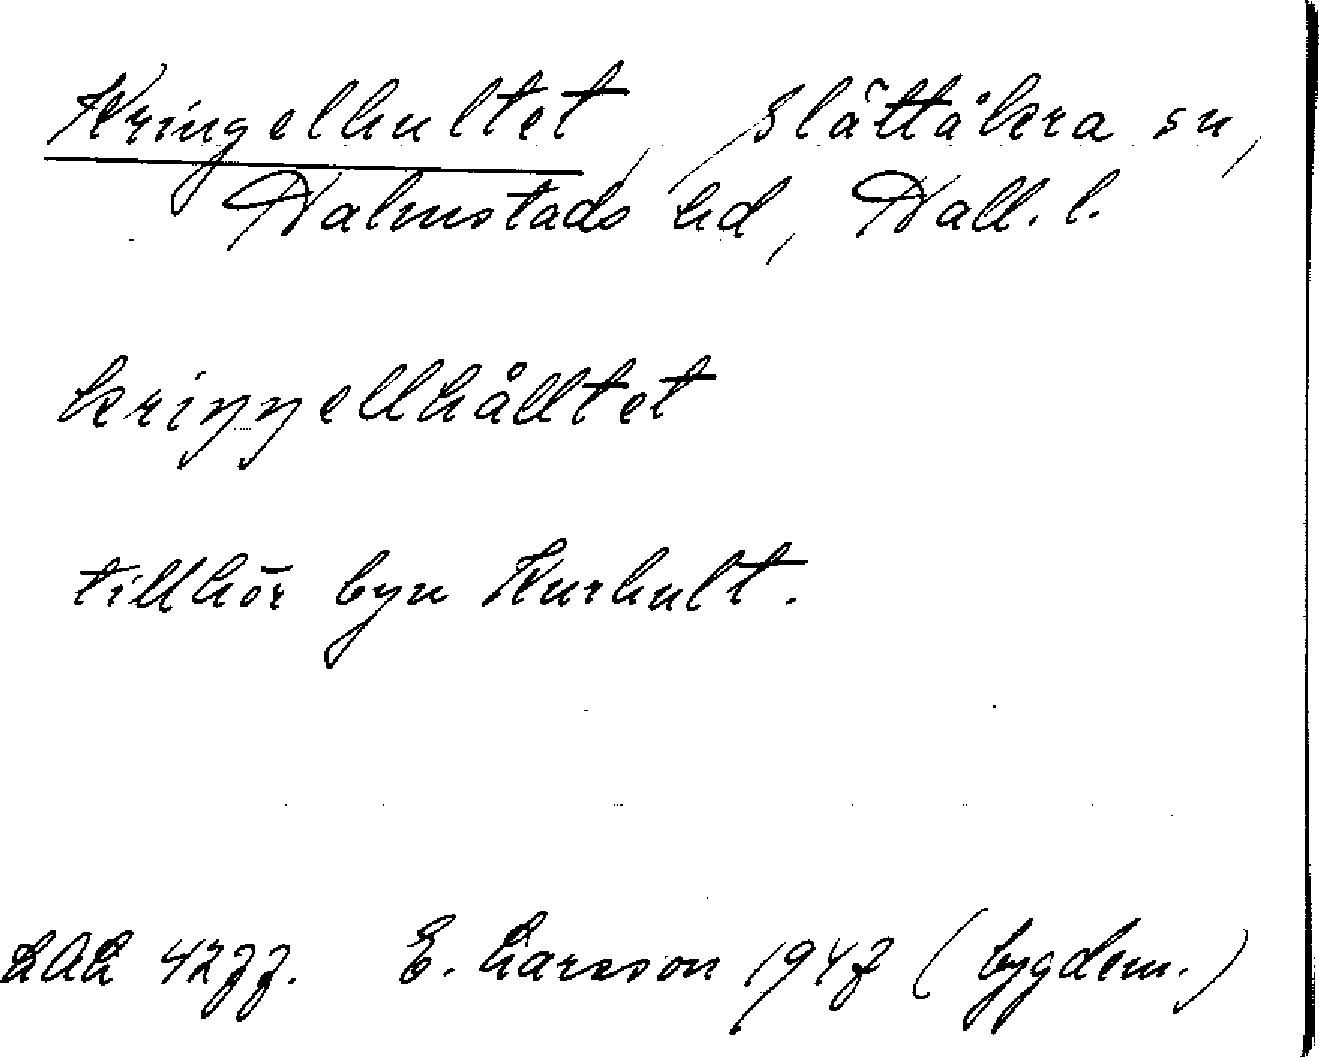 Kringelhultet, Slättåkra sn,
Halmstads hd, Hall. l.
kriŋŋellhålltet
tillhör byn Kurhult.
LAL 4277. E. Larsson 1947 (bygdem.)